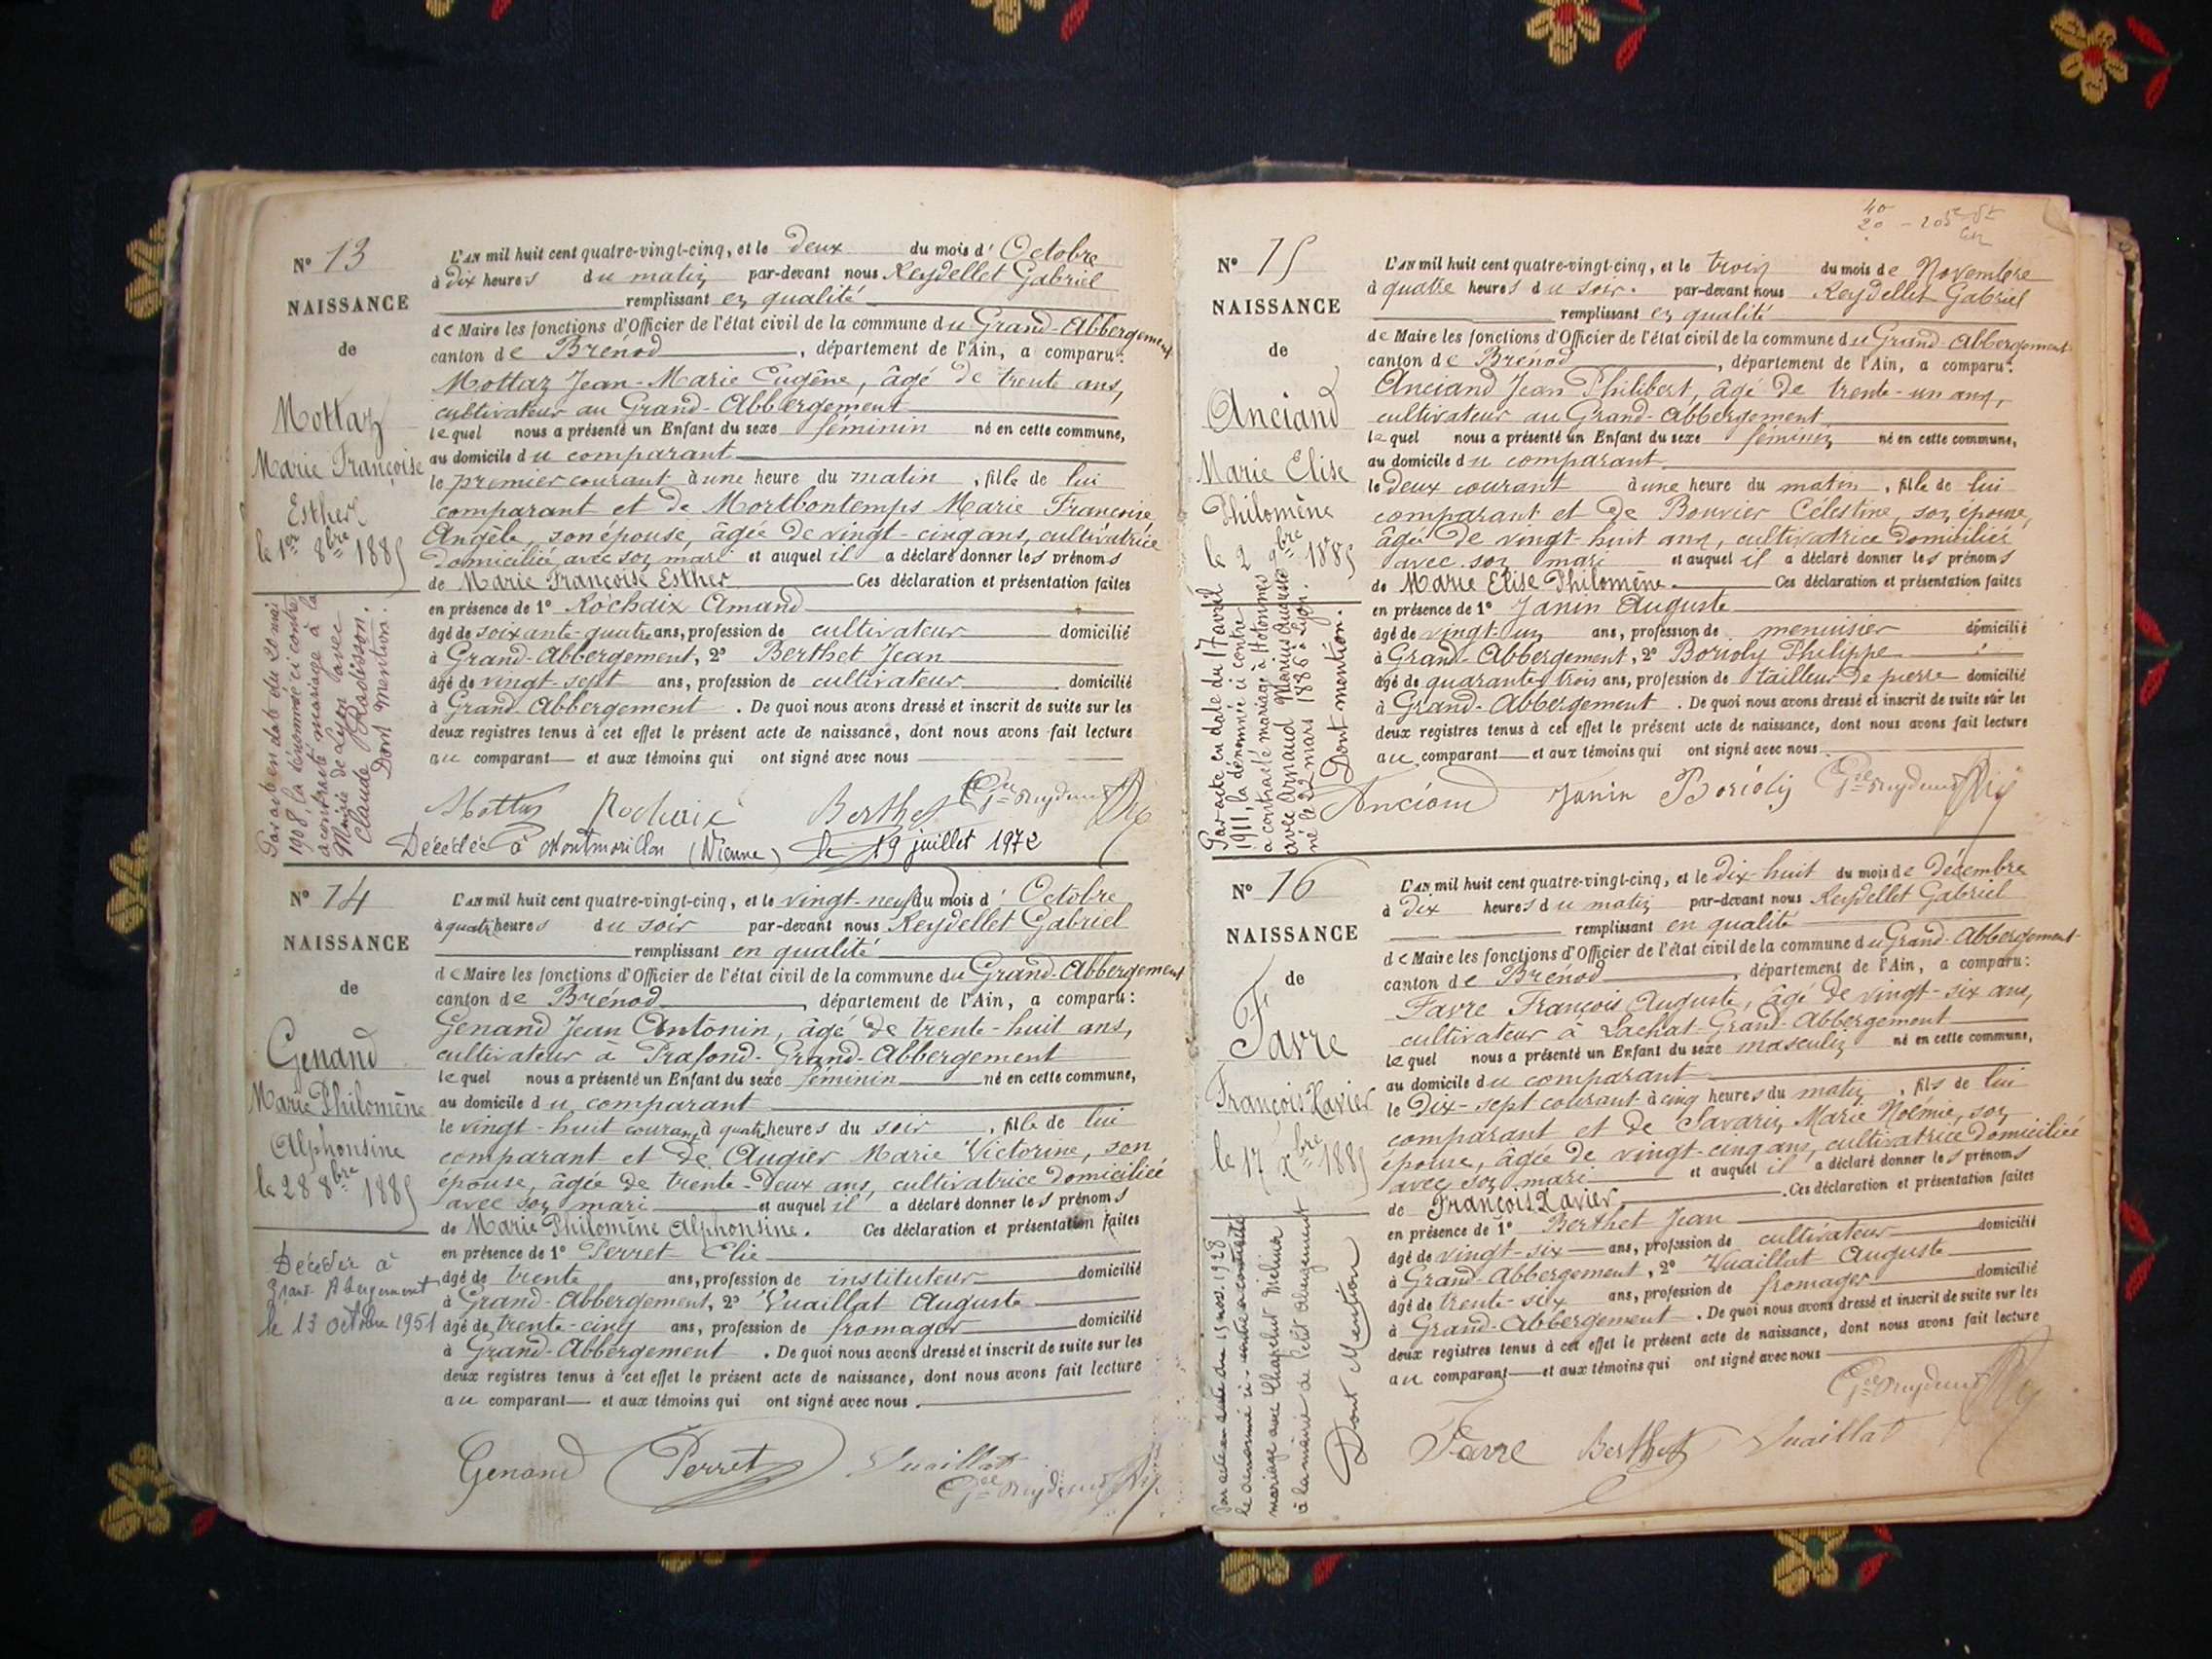 N° 13
NAISSANCE
de
Mottaz
Marie Françoise
Esther
le 1er 8bre 1885
Par acte en date du 20 mai
1908, la dénommée ci contre
a contracté mariage à la
Mairie de Lyon avec
Claude Radisson.
Dont mention.
L'AN mil huit cent quatre-vingt-cinq, et le deux du mois d'Octobre
à dix heures du matin par-devant nous Reydellet Gabriel
remplissant en qualité
de Maire les fonctions d'Officier de l'état civil de la commune du Grand-Abbergement
canton de Brénod, département de l'Ain, a comparu:
Mottaz Jean-Marie Eugène, âgé de trente ans,
cultivateur au Grand-Abbergement
lequel nous a présenté un Enfant du sexe féminin né en cette commune,
au domicile du comparant
le premier courant à une heure du matin, fille de lui
comparant et de Mortbontemps Marie Françoise
Angèle, son épouse, âgée de vingt-cinq ans, cultivatrice
domiciliée avec son mari et auquel il a déclaré donner les prénoms
de Marie Françoise Esther Ces déclaration et présentation faites
en présence de 1° Rochaix Amand
âgé de soixante-quatre ans, profession de cultivateur domicilié
à Grand-Abbergement, 2° Berthet Jean
âgé de vingt-sept ans, profession de cultivateur domicilié
à Grand-Abbergement. De quoi nous avons dressé et inscrit de suite sur les
deux registres tenus à cet effet le présent acte de naissance, dont nous avons fait lecture
au comparant et aux témoins qui ont signé avec nous
Mottaz Rochaix Berthet
Décédée à Montmorillon (Vienne) le 19 juillet 1972
N° 14
NAISSANCE
de
Genand
Marie Philomène
Alphonsine
le 28 8bre 1885
Décédée à
Grand Abergement
le 13 octobre 1951
L'AN mil huit cent quatre-vingt-cinq, et le vingt-neuf du mois d'Octobre
à quatre heures du soir par-devant nous Reydellet Gabriel
remplissant en qualité
de Maire les fonctions d'Officier de l'état civil de la commune du Grand-Abbergement
canton de Brénod, département de l'Ain, a comparu:
Genand Jean Antonin, âgé de trente-huit ans,
cultivateur à Prafond-Grand-Abbergement
lequel nous a présenté un Enfant du sexe féminin né en cette commune,
au domicile du comparant
le vingt-huit courant à quatre heures du soir, fille de lui
comparant et de Augier Marie Victorine, son
épouse, âgée de trente-deux ans, cultivatrice domiciliée
avec son mari et auquel il a déclaré donner les prénoms
de Marie Philomène Alphonsine. Ces déclaration et présentation faites
en présence de 1° Perret Elie
âgé de trente ans, profession de instituteur domicilié
à Grand-Abbergement, 2° Vuaillat Auguste
âgé de trente-cinq ans, profession de fromager domicilié
à Grand-Abbergement. De quoi nous avons dressé et inscrit de suite sur les
deux registres tenus à cet effet le présent acte de naissance, dont nous avons fait lecture
au comparant et aux témoins qui ont signé avec nous.
Genand Perret Vuaillat
40
20
N° 15
NAISSANCE
de
Anciand
Marie Elise
Philomène
le 2 9bre 1885
Par acte en date du 17 avril
1911, la dénommée ci contre
a contracté mariage à Hotonnes
avec Arnaud Marius Auguste
né le 22 mars 1886 à Lyon.
Dont mention.
L'AN mil huit cent quatre-vingt-cinq, et le trois du mois de Novembre
à quatre heures du soir. par-devant nous Reydellet Gabriel
remplissant en qualité
de Maire les fonctions d'Officier de l'état civil de la commune du Grand-Abbergement
canton de Brénod, département de l'Ain, a comparu:
Anciand Jean Philibert, âgé de trente-un ans,
cultivateur au Grand-Abbergement
lequel nous a présenté un Enfant du sexe féminin né en cette commune,
au domicile du comparant
le deux courant à une heure du matin, fille de lui
comparant et de Bouvier Célestine, son épouse,
âgée de vingt-huit ans, cultivatrice domiciliée
avec son mari et auquel il a déclaré donner les prénoms
de Marie Elise Philomène. Ces déclaration et présentation faites
en présence de 1° Janin Auguste
âgé de vingt-un ans, profession de menuisier domicilié
à Grand-Abbergement, 2° Borioly Philippe
âgé de quarante trois ans, profession de tailleur de pierre domicilié
à Grand-Abbergement. De quoi nous avons dressé et inscrit de suite sur les
deux registres tenus à cet effet le présent acte de naissance, dont nous avons fait lecture
au comparant et aux témoins qui ont signé avec nous.
Anciand Janin Borioly
N° 16
NAISSANCE
de
Favre
François Xavier
le 17 xbre 1885
Par acte en date du 15 nov. 1928
le dénommé ci-contre a contracté
mariage avec Chapelut Mélina
à la mairie de Petit Abergement
Dont Mention
L'AN mil huit cent quatre-vingt-cinq, et le dix-huit du mois de Décembre
à dix heures du matin par-devant nous Reydellet Gabriel
remplissant en qualité
de Maire les fonctions d'Officier de l'état civil de la commune du Grand-Abbergement
canton de Brénod, département de l'Ain, a comparu:
Favre François Auguste, âgé de vingt-six ans,
cultivateur à Lachat-Grand-Abbergement
lequel nous a présenté un Enfant du sexe masculin né en cette commune,
au domicile du comparant
le dix-sept courant à cinq heures du matin, fils de lui
comparant et de Savarin Marie Noémie, son
épouse, âgée de vingt-cinq ans, cultivatrice domiciliée
avec son mari et auquel il a déclaré donner les prénoms
de François Xavier. Ces déclaration et présentation faites
en présence de 1° Berthet Jean
âgé de vingt-six ans, profession de cultivateur domicilié
à Grand-Abbergement, 2° Vuaillat Auguste
âgé de trente-six ans, profession de fromager domicilié
à Grand-Abbergement. De quoi nous avons dressé et inscrit de suite sur les
deux registres tenus à cet effet le présent acte de naissance, dont nous avons fait lecture
au comparant et aux témoins qui ont signé avec nous
Favre Berthet Vuaillat